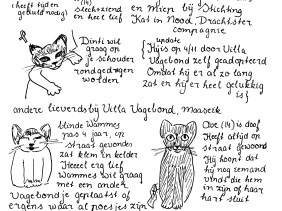 (heeft tijden
geduld nodig)
(14)
slechtziend
en heel lief
en miep bij Stichting
Kat in Nood, Drachtster
compagnie
Dinti wil
graag op
je schouder
rondgedragen
worden
update
Hij is op 4/11 door Villa
Vagebond zelf geadopteerd
Omdat hij er al zo lang
zat en hij er heel gelukkig
is
andere lieverds bij Villa Vagebond, Maaseik
blinde Wammes
pas 4 jaar, op
straat gevonden
zat klem in kelder
Heeeel erg lief
Wammes wil graag
met een ander
Vagebondje geplaatst of
ergens waar al poesjes zijn
(14) is doof
Heeft altijd op
straat gewoond
Hij hoopt dat
hij nog iemand
vindt die hem
in zijn of haar
hart sluit